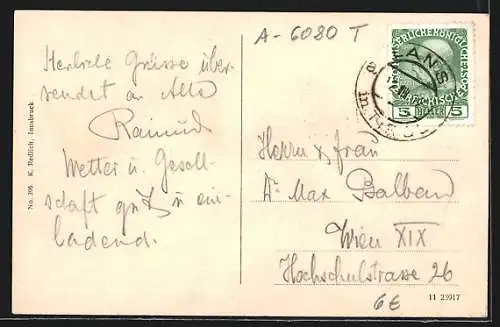 A-6080 T
Herzliche Grüsse über-
sendet an Alle
Raimund
Wetter u. Gesell-
schaft gut u ein-
ladend.
No. 396 K. Redlich, Innsbruck
KAISERLICHE KÖNIGLICHE
ÖSTERREICHISCHE POST
5 5
ANS
in TIROL
Herrn & Frau
Dr Max
Wien XIX
Hochschulstrasse 26
6€
11 23917